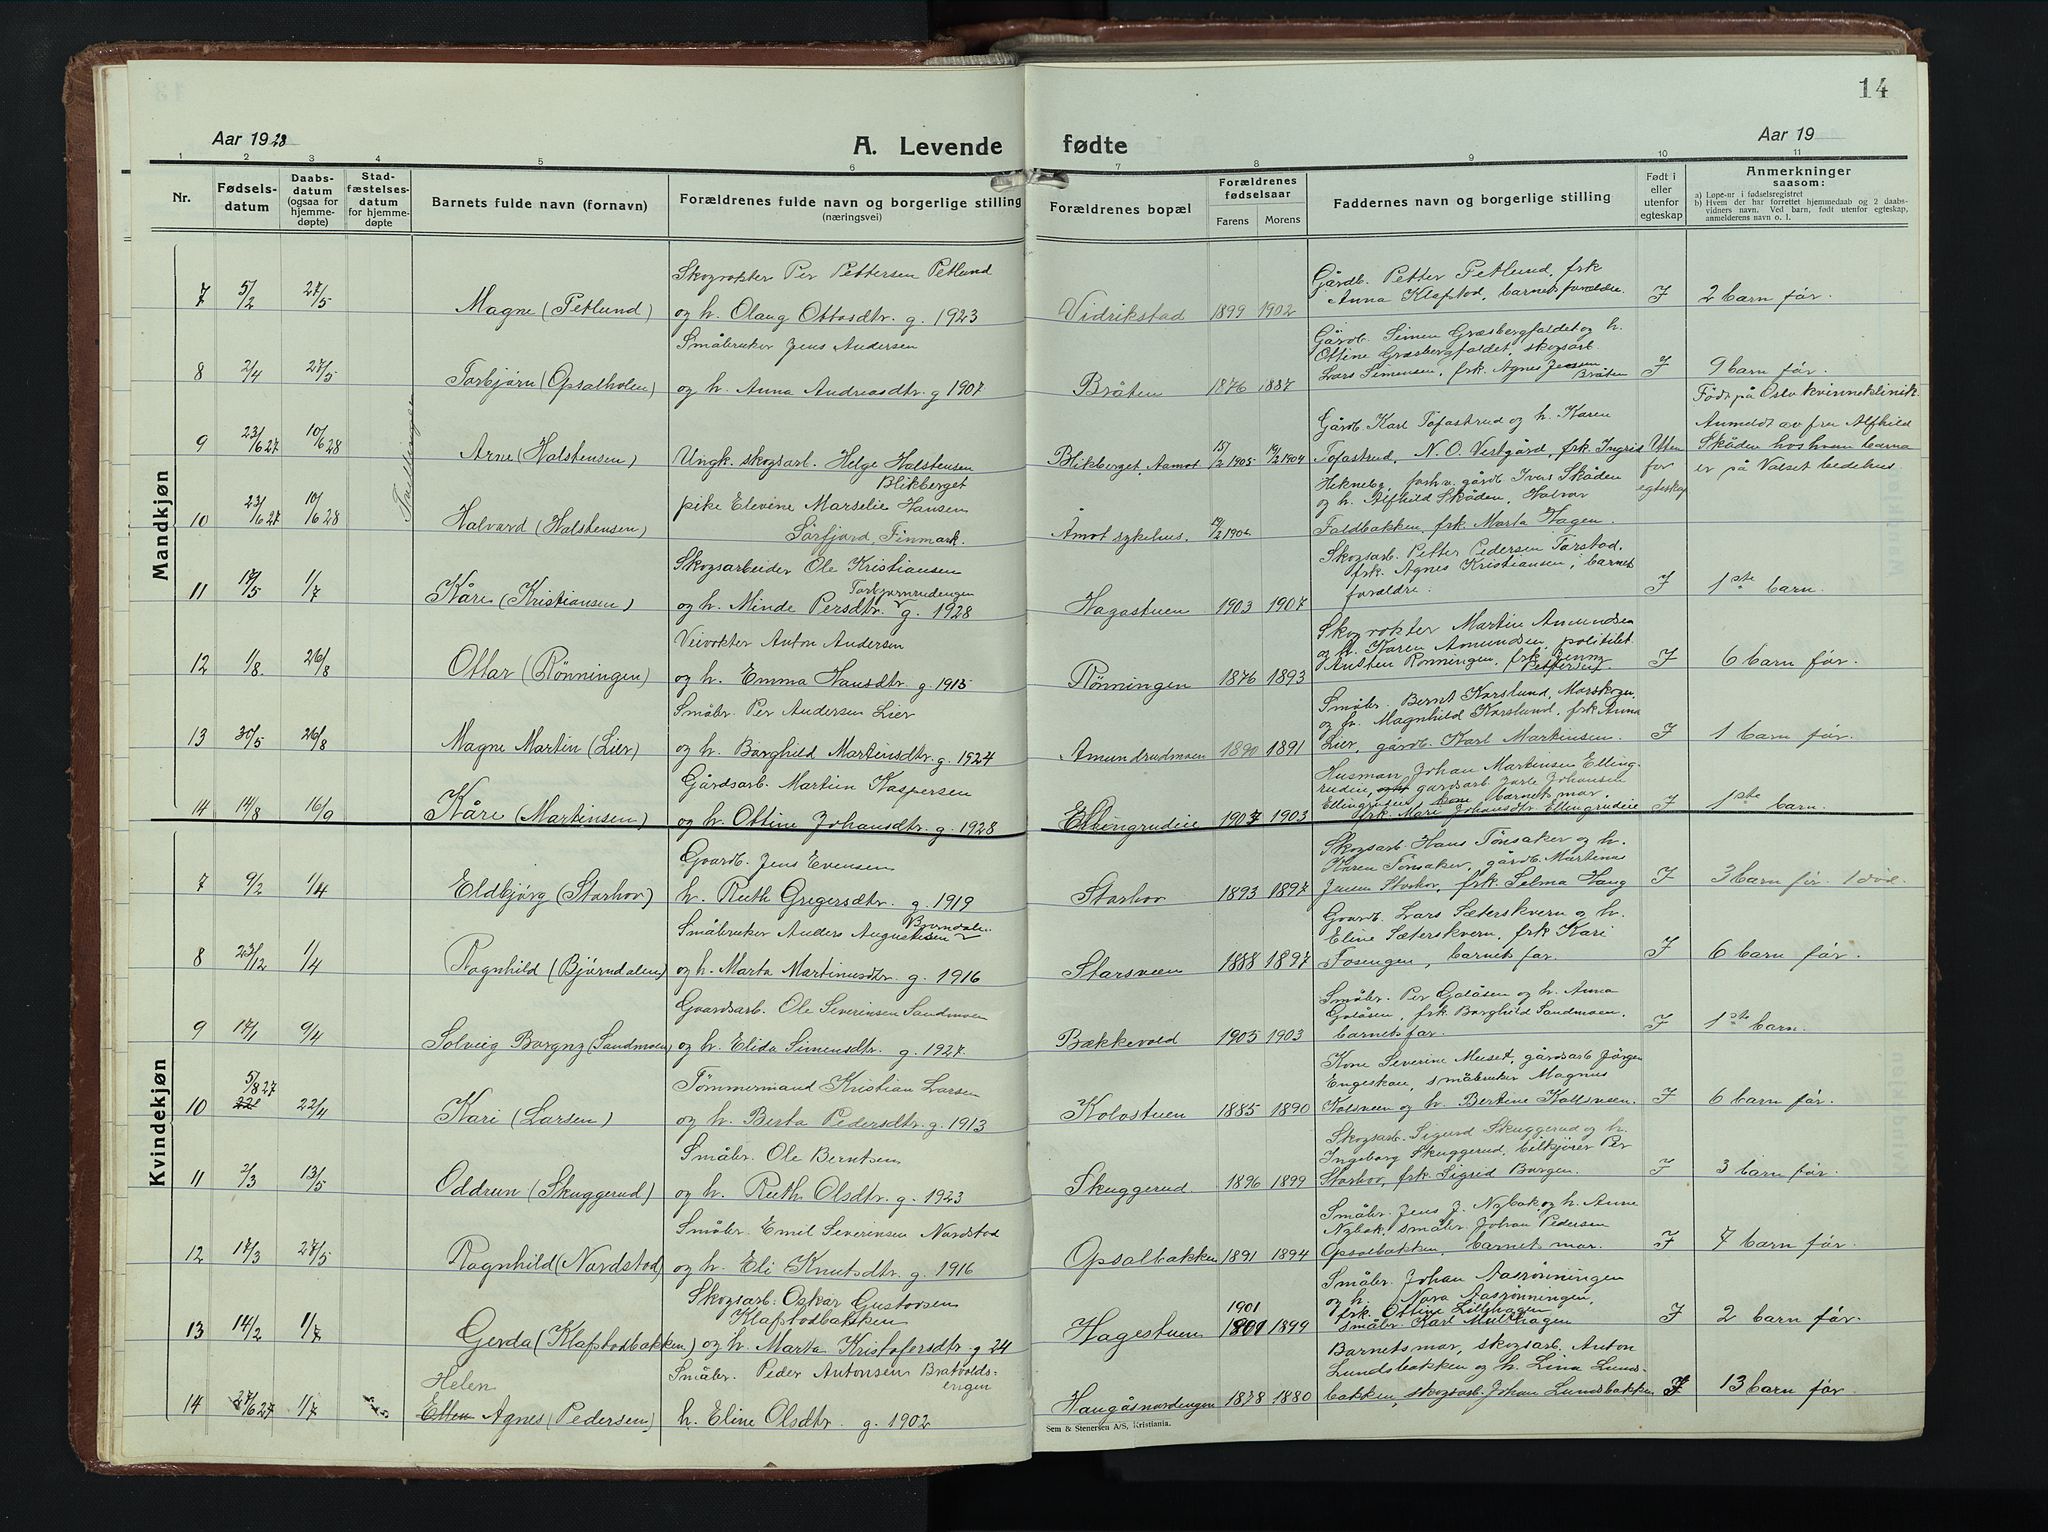 14
Aar 1928
A. Levende fødte
Aar 19
1 2 3 4 5 6 7 8 9 10 11
Nr.
Fødselsdatum
Daabsdatum (ogsaa for hjemmedøpte)
Stadfæstelsesdatum for hjemmedøpte
Barnets fulde navn (fornavn)
Forældrenes fulde navn og borgerlige stilling
(næringsvei)
Forældrenes bopæl
Forældrenes fødselsaar
Farens Morens
Faddernes navn og borgerlige stilling
Født i eller utenfor egteskap
Anmerkninger saasom:
a) Løpe-nr. i fødselsregistret
b) Hvem der har forrettet hjemmedaab og 2 daabsvidners navn. Ved barn, født utenfor egteskap, anmelderens navn o. l.
Mandkjøn
7 5/2 27/5 Magne (Petlund)
Skogvokter Per Pettersen Petlund
og h. Olaug Ottosdtr. g. 1923
Vidrikstad 1899 1902
Gårdb. Petter Petlund, frk
Anna Klafstad, barnets forældre.
I 2 barn før.
8 2/4 27/5 Torbjørn (Opsalholen)
Småbruker Jens Andersen
og h. Anna Andreasdtr. g 1907
Bråten 1876 1887
Gårdb. Simen Græsbergfaldet og h.
Ottine Græsbergfaldet, skogsarb.
Lars Simensen, frk. Agnes Jensen
Bråten
I 9 barn før.
Tvillinger
9 23/6 27 10/6 28 Arne (Halstensen)
Ungk. skogsarb. Helge Halstensen
Blikberget
Blikberget, Aamot 15/2 1905 19/2 1904
Gårdb Karl Tofastrud og h. Karen
Tofastrud, N. O. Vestgård, frk Ingrid
Hekneby, forh.v. gårdb Ivar Skåden
og h. Alfhild Skåden, Halvor
Utenfor egteskap
Født på Oslo kvinneklinik.
Anmeldt av fru Alfhild
Skåden hos hvem barna
er på Valset bedehus.
10 23/6 27 10/6 28 Halvard (Halstensen)
pike Elevine Marselie Hansen
Sørfjord, Finmark.
Åmot sykehus. 19/2 1904
Faldbakken, frk. Marta Hagen.
11 17/5 1/7 Kåre (Kristiansen)
Skogsarbeider Ole Kristiansen
Torbjørnrudengen
og h. Minde Persdtr. g. 1928
Hagastuen 1903 1907
Skogsarb. Petter Pedersen Torstad,
frk. Agnes Kristiansen, barnets
forældre.
I 1ste barn.
12 1/8 26/8 Ottar (Rønningen)
Veivokter Anton Andersen
og h. Emma Hansdtr. g. 1915
Rønningen 1876 1893
Skogvokter Martin Amundsen
og h. Karen Amundsen, politibet
Austen Rønningen, frk Jenny
Pettersen
I 6 barn før.
13 30/5 26/8 Magne Martin (Lier)
Småbr. Per Andersen Lier
og h. Borghild Martinsdtr. g. 1924
Amundrudmoen 1890 1891
Småbr. Bernt Karslund, Morskogn.
og h. Magnhild Karslund, frk Anna
Lier, gårdb. Karl Martinsen.
I 1 barn før.
14 14/8 16/9 Kåre (Martinsen)
Gårdsarb. Martin Kaspersen
og h. Ottine Johansdtr. g. 1928
Ellingrudeie 1907 1903
Husman Johan Martinsen Ellingruden,
gårdsarb Jarle Johansen
Ellingruden, barnets mor,
frk. Mari Johansdtr. Ellingrudeie
I 1ste barn.
Kvindekjøn
7 9/2 1/4 Eldbjørg (Storhov)
Gaardb. Jens Evensen
h. Ruth Gregersdtr. g. 1919
Storhov 1893 1897
Skogsarb. Hans Tønsaker og h.
Karen Tønsaker, gårdb. Martinus
Jensen Storhov, frk. Selma Haug
I 3 barn før. 1 død.
8 23/12 1/4 Ragnhild (Bjørndalen)
Småbruker Anders Augustsen Bjørndalen
og h. Marta Martinusdtr. g. 1916
Storsveen 1888 1897
Gaardb. Lars Sæterskvern og h.
Eline Sæterskvern, frk Kari
Tosengen, barnets far.
I 6 barn før.
9 17/1 9/4 Solveig Borgny (Sandmoen)
Gaardsarb. Ole Severinsen Sandmoen
og h. Elida Simensdtr. g. 1927.
Bækkevold 1905 1903
Småbr. Per Golåsen og h. Anna
Golåsen, frk Borghild Sandmoen,
barnets far.
I 1ste barn.
10 5/8 27 22/4 Kari (Larsen)
Tømmermand Kristian Larsen
og h. Berta Pedersdtr. g. 1913
Kolostuen 1885 1890
Kone Severine Museet, gårdsarb Jørgen
Engeskau, småbruker Magnus
Kolsveen og h. Bertine Kolsveen.
I 6 barn før.
11 2/3 13/5 Oddrun (Skuggerud)
Småbr. Ole Berntsen
og h. Ruth Olsdtr. g. 1923
Skuggerud. 1896 1899
Skogsarb. Sigurd Skuggerud og h.
Ingeborg Skuggerud, bilkjører Per
Storhov, frk. Sigrid Borgen.
I 3 barn før.
12 17/3 27/5 Ragnhild (Nordstad)
Småbr. Emil Severinsen Nordstad
og h. Eli Knutsdtr. g. 1916
Opsalbakken 1891 1894
Småbr. Jens J. Nybak og h. Anne
Nybak, småbr. Johan Pedersen
Opsalbakken, barnets mor.
I 7 barn før.
13 14/2 1/7 Gerda (Klafstadbakken)
Skogsarb. Oskar Gustavsen
Klafstadbakken
og h. Marta Kristofersdtr. g 24
Hagestuen 1901 1899
Småbr. Johan Aasrønningen
og h. Nora Aasrønningen,
frk. Ottine Lillehagen,
småbr. Karl Mulshagen
I 2 barn før.
14 27/6 27 1/7 Helen
Ellen Agnes (Pedersen)
Småbr. Peder Antonsen Bratvoldsengen
h. Eline Olsdtr. g. 1902
Haugåsnordengen 1878 1880
Barnets mor, skogsarb. Anton
Lundsbakken og h. Lina Lundsbakken,
skogsarb. Johan Lundsbakken
I 13 barn før.
Sem & Stenersen A/S, Kristiania.